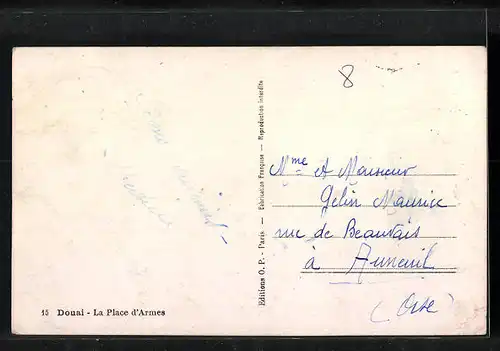 8
Mme et Monsieur
Gelin Maurice
rue de Beauvais
à Auneuil
(Oise)
Editions O. P. - Paris - Fabrication Française - Reproduction interdite
15 Douai - La Place d'Armes